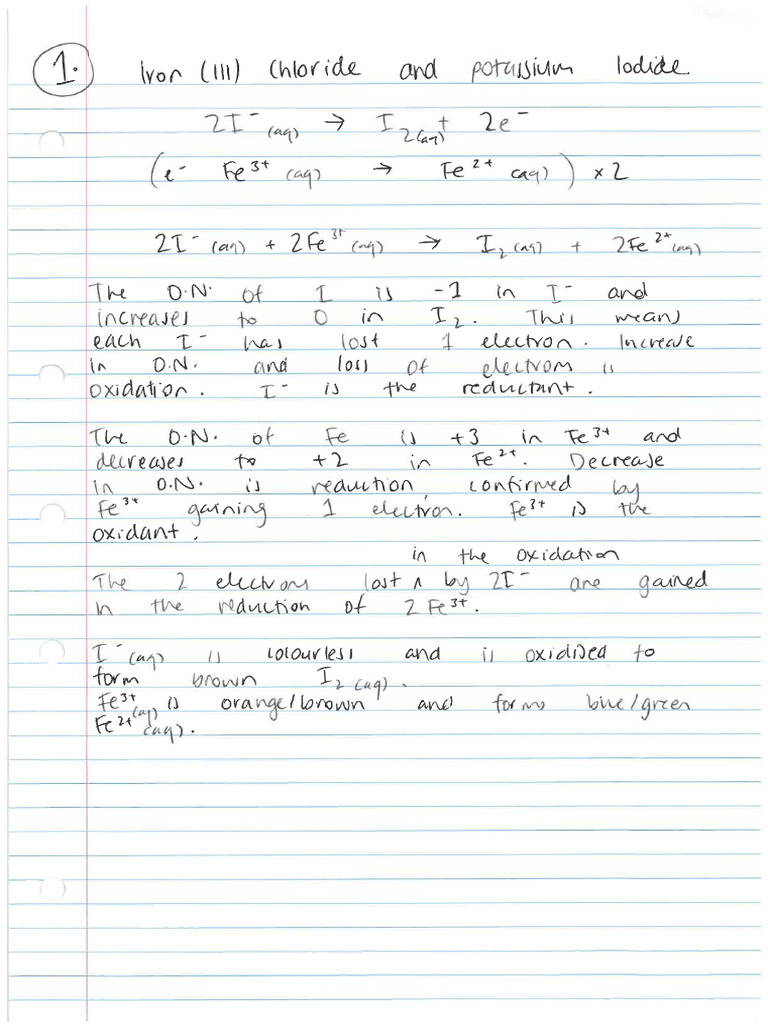 1. Iron (III) Chloride and potassium Iodide
2I⁻(aq) → I₂(aq) + 2e⁻
(e⁻ Fe³⁺(aq) → Fe²⁺(aq)) × 2
2I⁻(aq) + 2Fe³⁺(aq) → I₂(aq) + 2Fe²⁺(aq)
The O.N. of I is -1 in I⁻ and
increases to 0 in I₂. This means
each I⁻ has lost 1 electron. Increase
in O.N. and loss of electrons is
oxidation. I⁻ is the reductant.
The O.N. of Fe is +3 in Fe³⁺ and
decreases to +2 in Fe²⁺. Decrease
in O.N. is reduction, confirmed by
Fe³⁺ gaining 1 electron. Fe³⁺ is the
oxidant.
in the oxidation
The 2 electrons lost ʌ by 2I⁻ are gained
in the reduction of 2Fe³⁺.
I⁻(aq) is colourless and is oxidised to
form brown I₂(aq).
Fe³⁺(aq) is orange/brown and forms blue/green
Fe²⁺(aq).